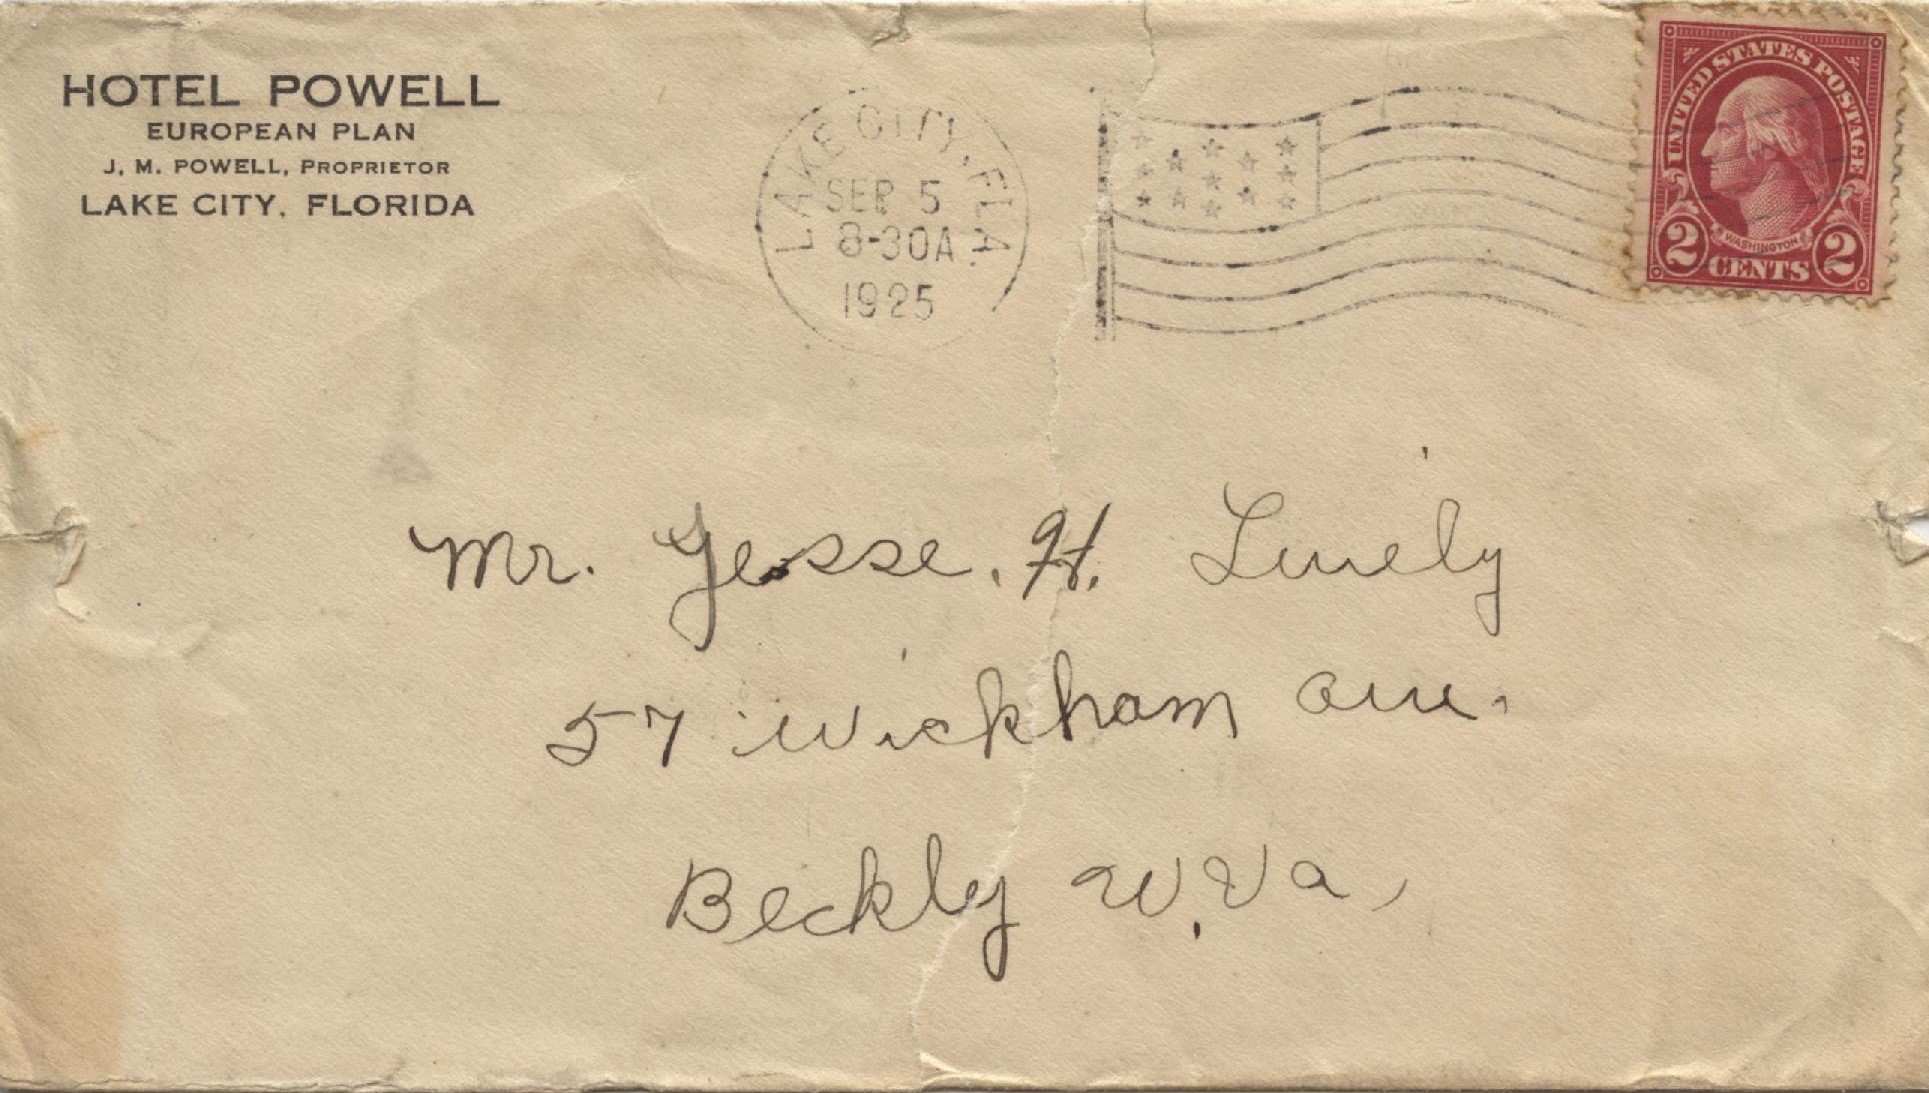 HOTEL POWELL
EUROPEAN PLAN
J. M. POWELL, PROPRIETOR
LAKE CITY, FLORIDA
LAKE CITY, FLA.
SEP 5
8-30A
1925
UNITED STATES POSTAGE
WASHINGTON
2 CENTS 2
Mr. Jesse. H. Lively
57 Wickham ave.
Beckly W. Va,